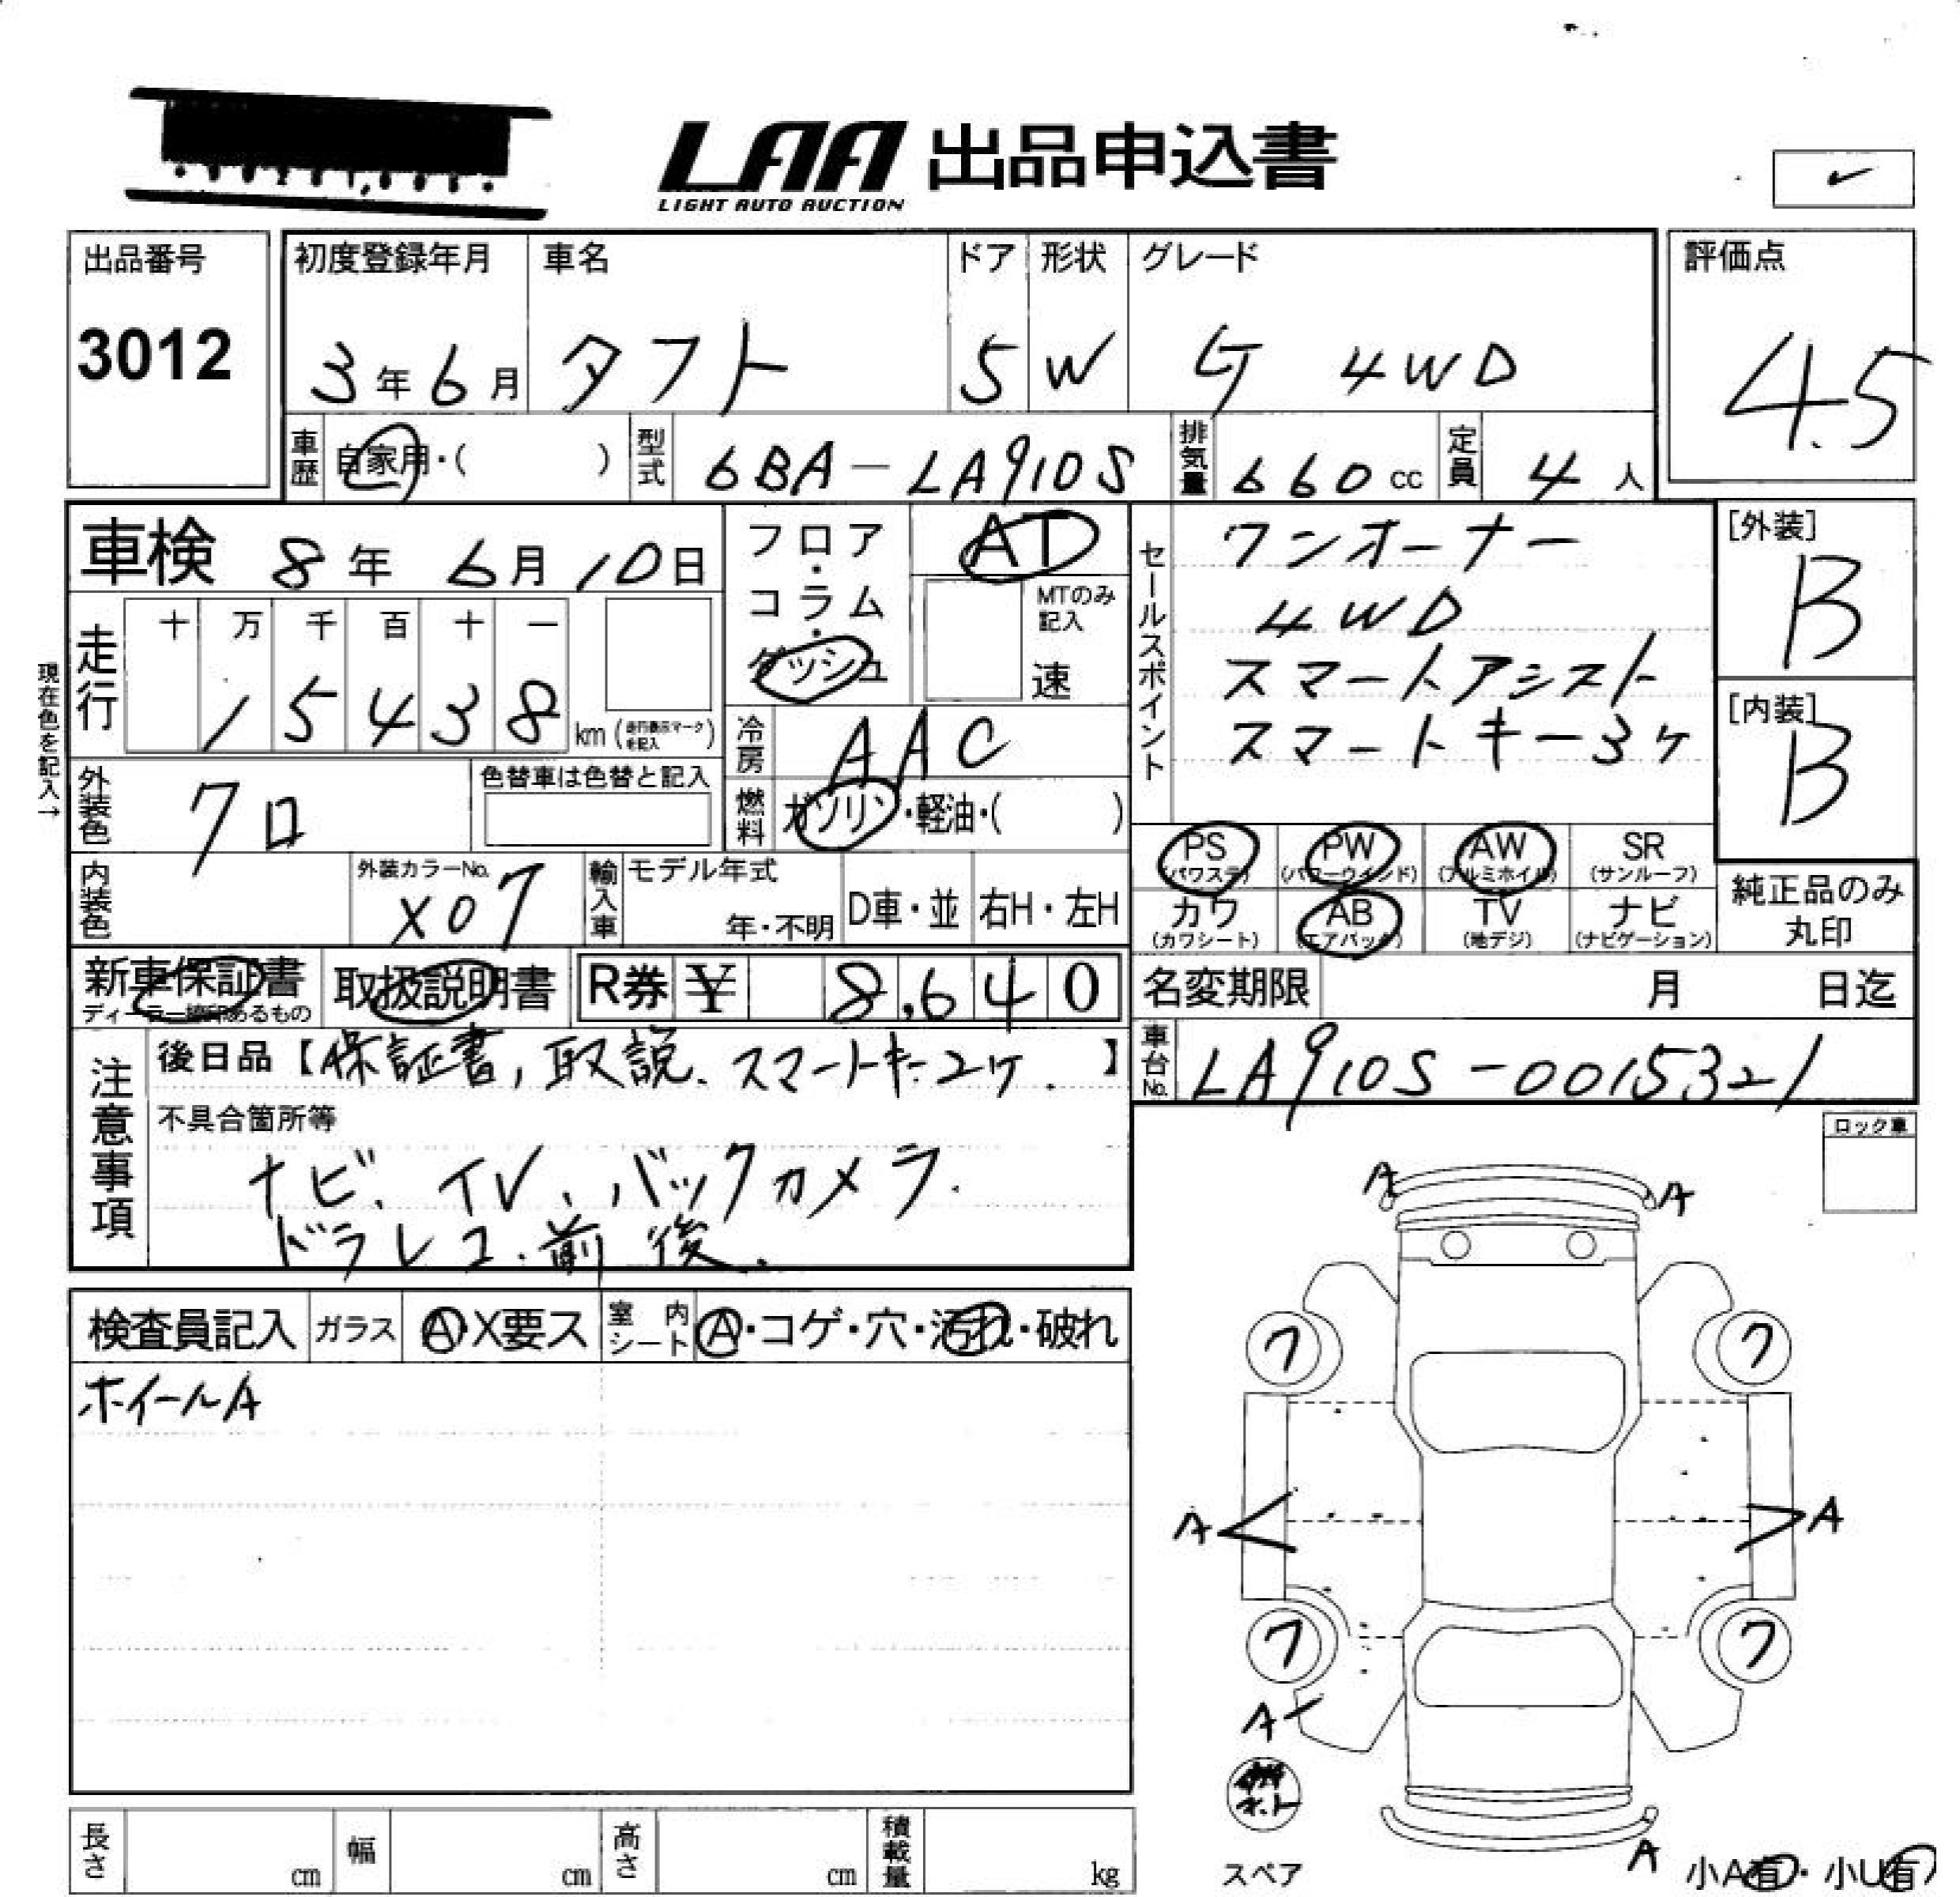 LAA 出品申込書
LIGHT AUTO AUCTION
出品番号
3012
初度登録年月
3年6月
車名
タフト
ドア
5
形状
W
グレード
G 4WD
評価点
4.5
車歴
自家用・( )
型式
6BA-LA910S
排気量
660cc
定員
4人
車検 8年 6月 10日
フロア・コラム・ダッシュ
AT
MTのみ記入
速
セールスポイント
ワンオーナー
4WD
スマートアシスト
スマートキー3ケ
[外装]
B
[内装]
B
現在色を記入→
走行
十 万 千 百 十 一
1 5 4 3 8 km (走行表示マークを記入)
冷房
AAC
外装色
クロ
色替車は色替と記入
燃料
ガソリン・軽油・( )
内装色
外装カラーNo.
X07
輸入車
モデル年式
年・不明
D車・並
右H・左H
PS (パワステ)
PW (パワーウインド)
AW (アルミホイル)
SR (サンルーフ)
カワ (カワシート)
AB (エアバック)
TV (地デジ)
ナビ (ナビゲーション)
純正品のみ
丸印
新車保証書
取扱説明書
R券 ¥ 8,640
名変期限 月 日迄
車台No.
LA910S-0015321
注意事項
後日品【保証書, 取説、スマートキー2ケ.】
不具合箇所等
ナビ、TV、バックカメラ.
ドラレコ.前後.
ロック車
検査員記入
ガラス
A・X要ス
室内シート
A・コゲ・穴・汚れ・破れ
ホイールA
A A
ワ ワ
A A
ワ ワ
A
A
スペア
小A有・小U有
長さ cm
幅 cm
高さ cm
積載量 kg